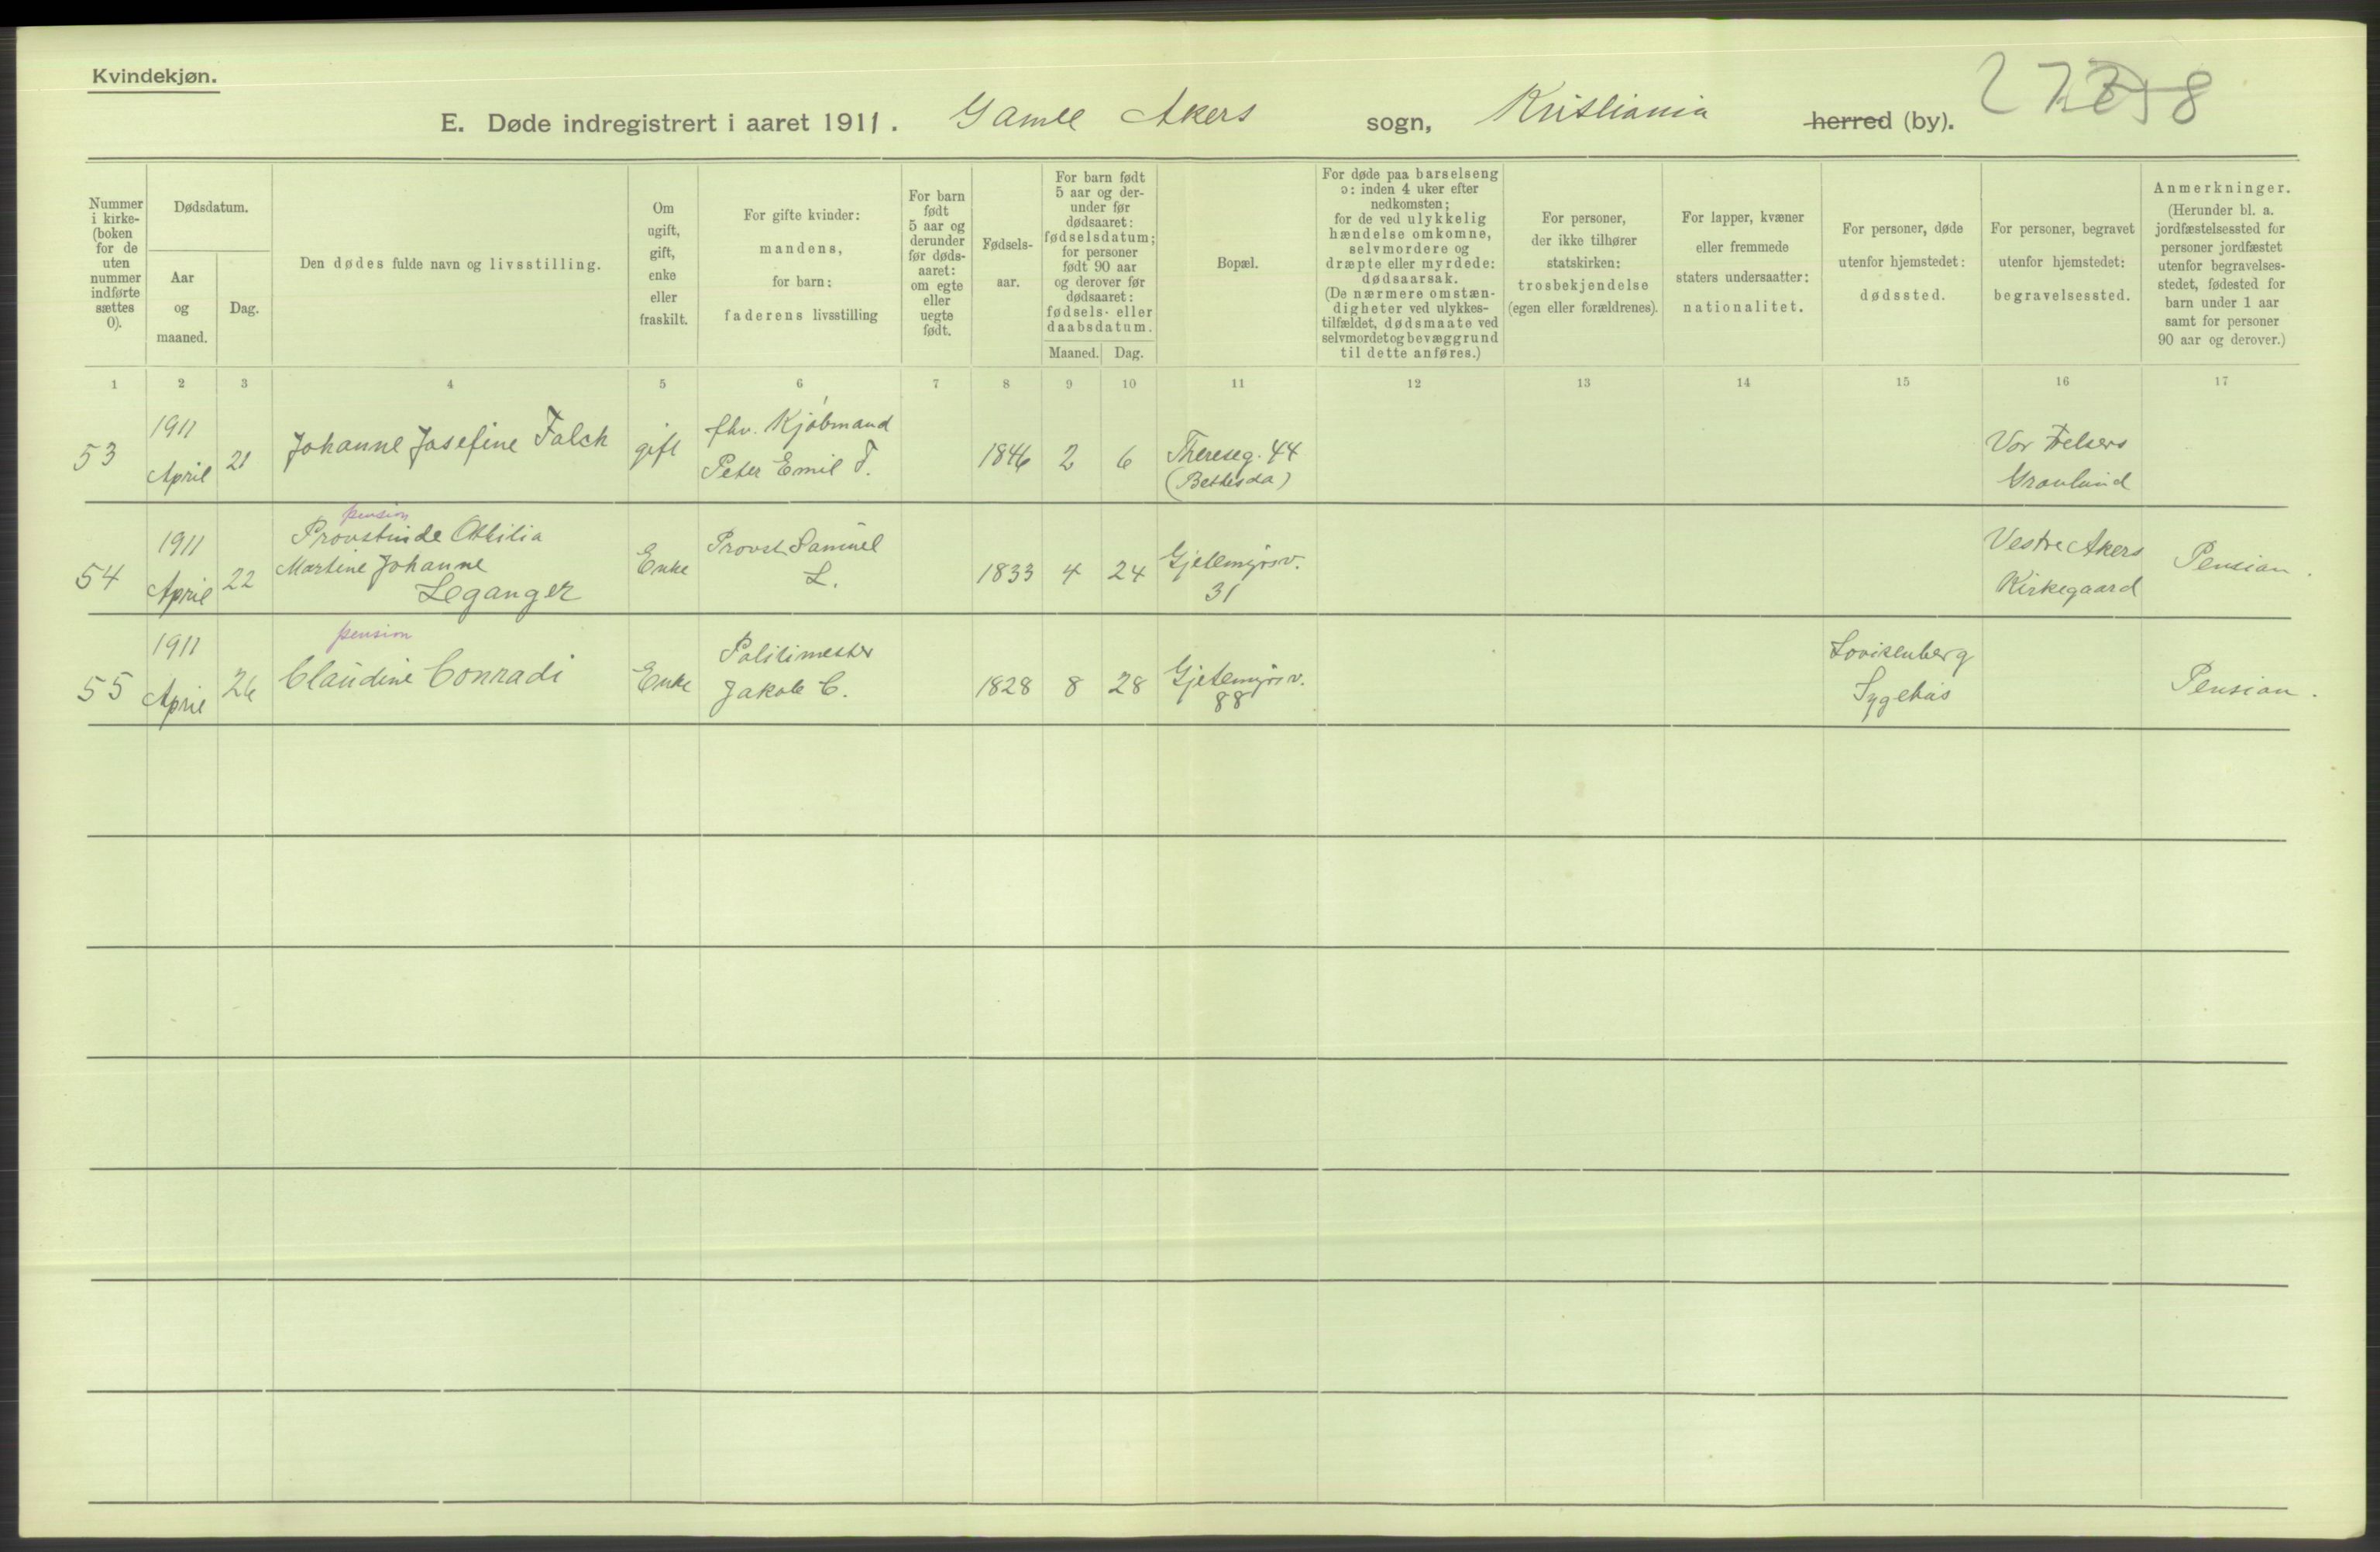 Kvindekjøn.
E. Døde indregistrert i aaret 1911. Gamle Akers sogn, Kristiania herred (by).
Nummer i kirke-
(boken
for de
uten
nummer
indførte
sættes
0).
Dødsdatum.
Aar
og
maaned.
Dag.
Den dødes fulde navn og livsstilling.
Om
ugift,
gift,
enke
eller
fraskilt.
For gifte kvinder:
mandens,
for barn:
faderens livsstilling
For barn
født
5 aar og
derunder
før døds-
aaret:
om egte
eller
uegte
født.
Fødsels-
aar.
For barn født
5 aar og der-
under før
dødsaaret:
fødselsdatum;
for personer
født 90 aar
og derover før
dødsaaret:
fødsels- eller
daabsdatum.
Maaned. Dag.
Bopæl.
For døde paa barselseng
ɔ: inden 4 uker efter
nedkomsten;
for de ved ulykkelig
hændelse omkomne,
selvmordere og
dræpte eller myrdede:
dødsaarsak.
(De nærmere omstæn-
digheter ved ulykkes-
tilfældet, dødsmaate ved
selvmordet og bevæggrund
til dette anføres.)
For personer,
der ikke tilhører
statskirken:
trosbekjendelse
(egen eller forældrenes).
For lapper, kvæner
eller fremmede
staters undersaatter:
nationalitet.
For personer, døde
utenfor hjemstedet:
dødssted.
For personer, begravet
utenfor hjemstedet:
begravelsessted.
Anmerkninger.
(Herunder bl. a.
jordfæstelsessted for
personer jordfæstet
utenfor begravelses-
stedet, fødested for
barn under 1 aar
samt for personer
90 aar og derover.)
1 2 3 4 5 6 7 8 9 10 11 12 13 14 15 16 17
53
1911
April
21
Johanne Josefine Falck
gift
fhv. Kjøbmand
Peter Emil F.
1846
2
6
Thereseg. 44
(Bethesda)
Vor Frelsers
Gravlund
54
1911
April
22
pension
Provstinde Othilia
Martine Johanne
Leganger
Enke
Provst Samuel
L.
1833
4
24
Gjetemyrsv.
31
Vestre Akers
Kirkegaard
Pension.
55
1911
April
26
pension
Claudine Conradi
Enke
Politimester
Jakob C.
1828
8
28
Gjetemyrsv.
88
Lovisenberg
Sygehus
Pension.